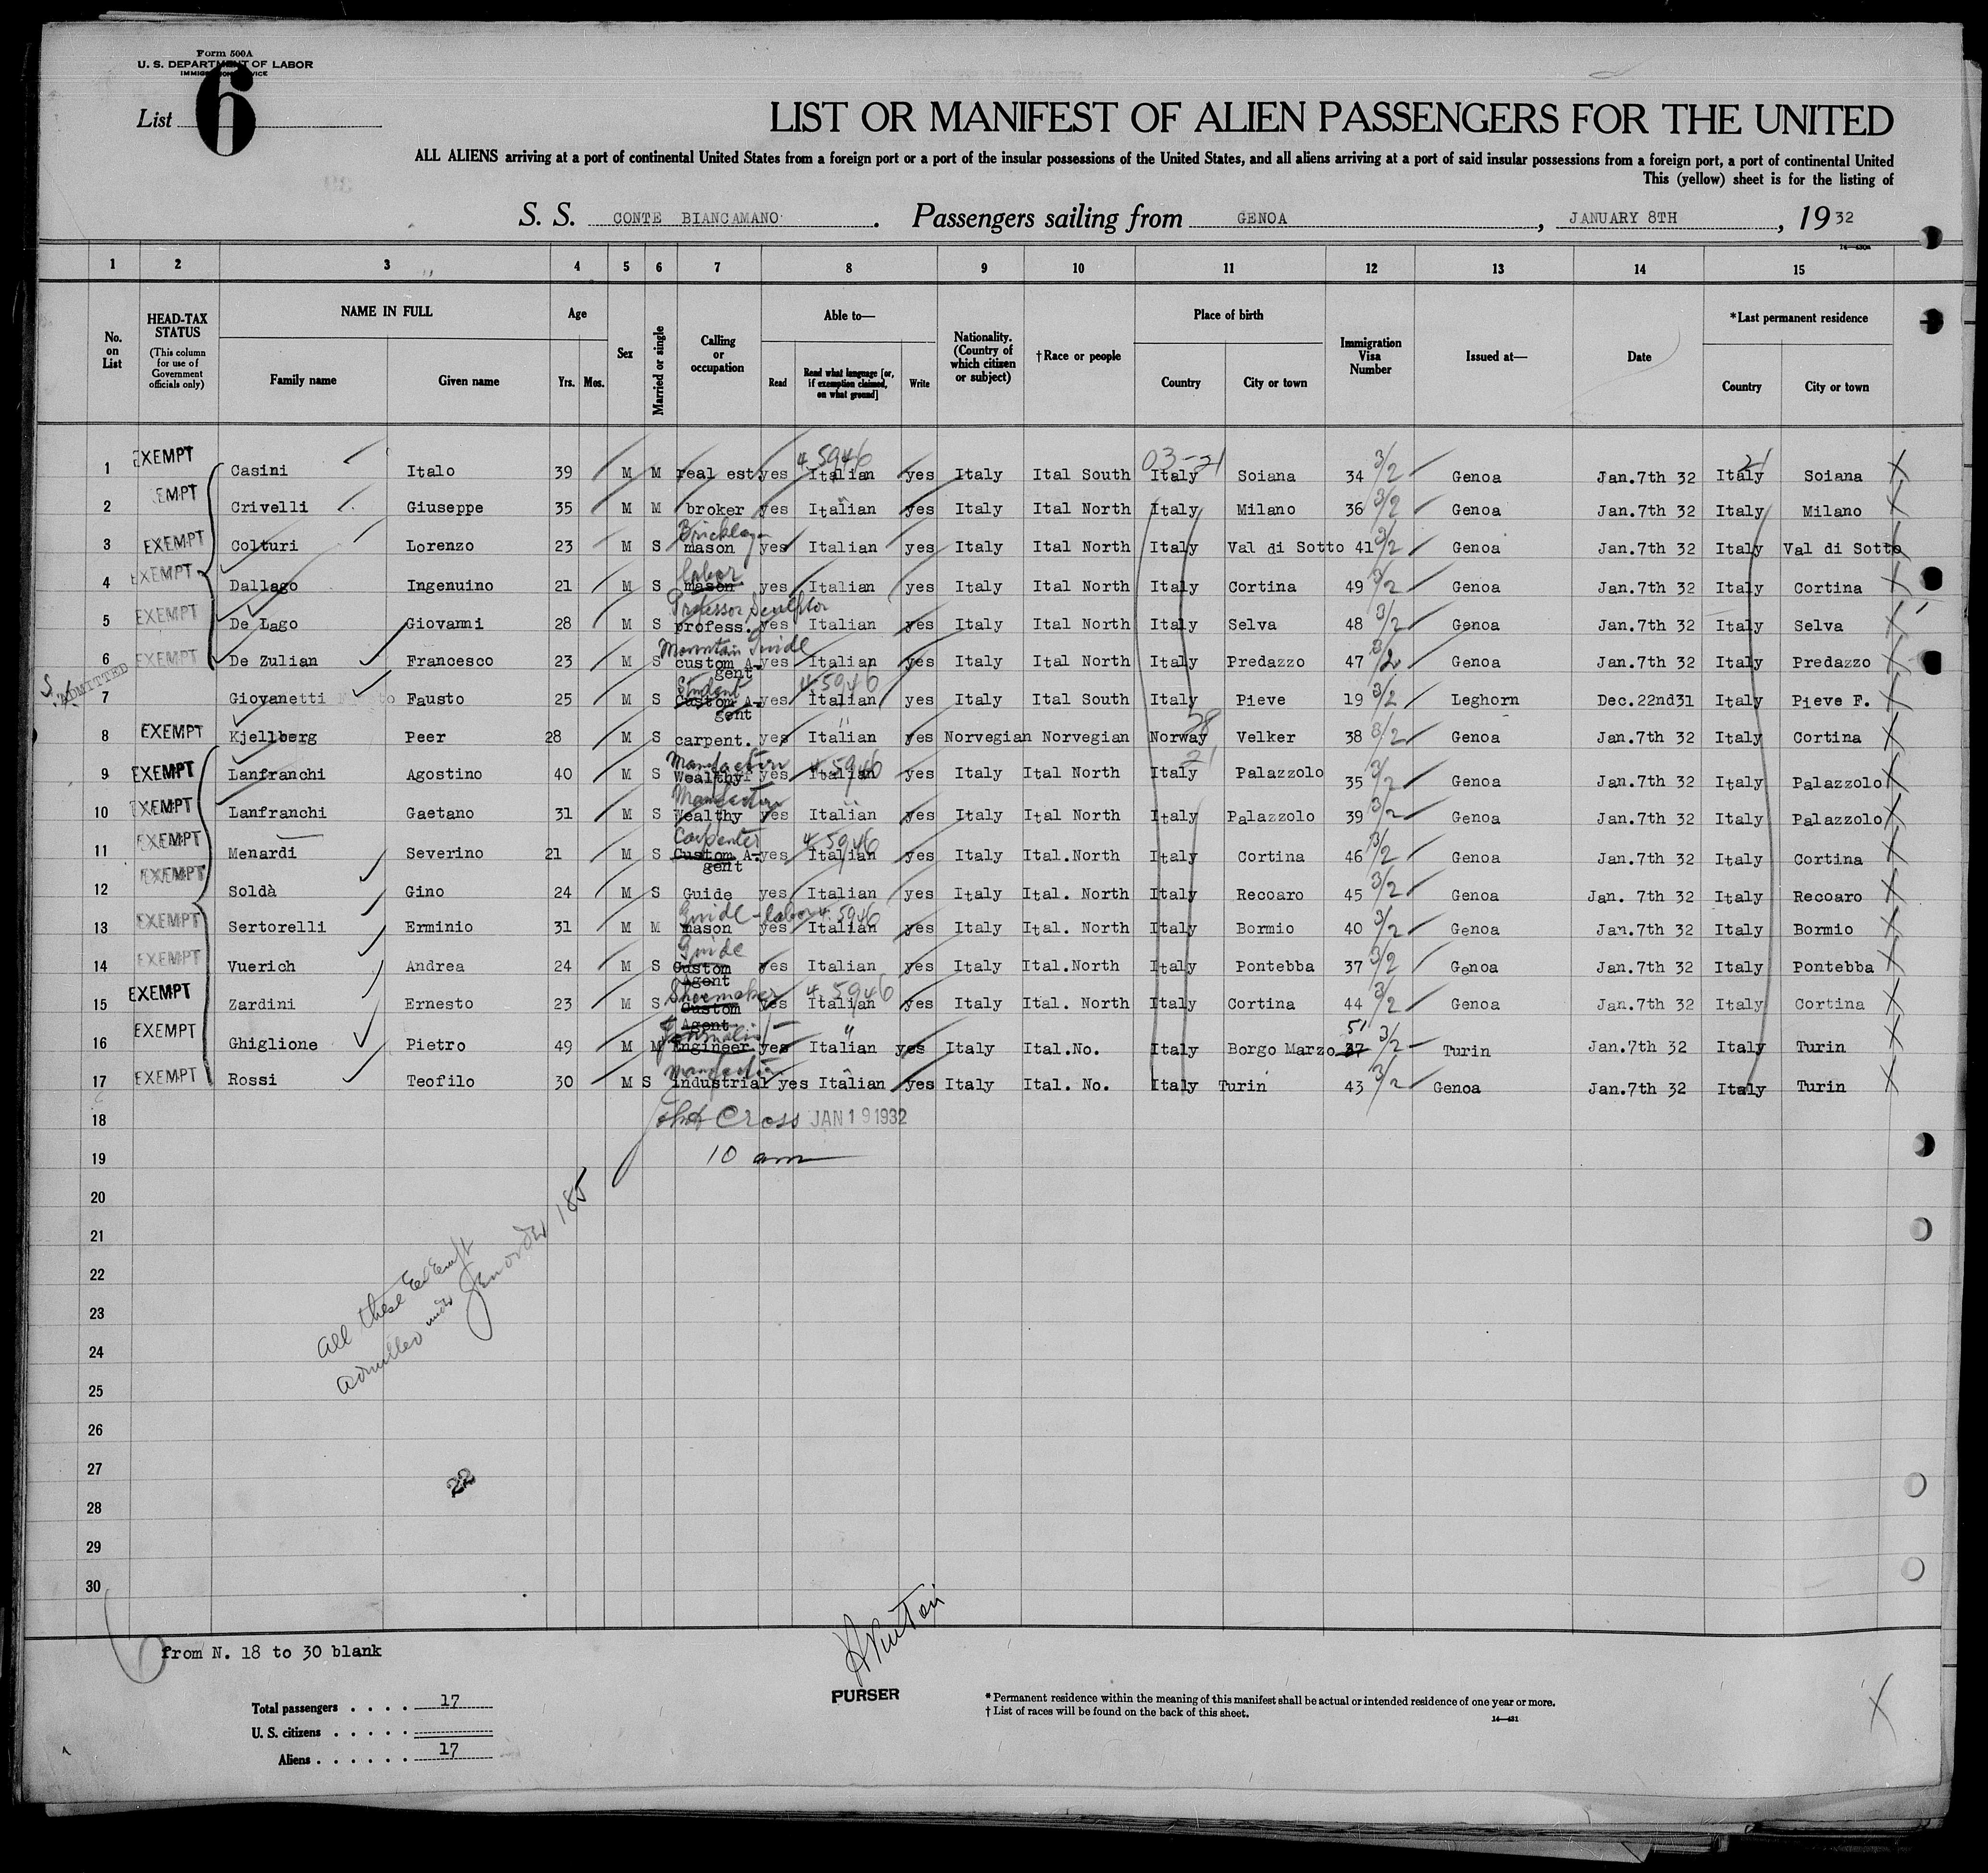 Form 500A
U. S. DEPARTMENT OF LABOR
IMMIGRATION SERVICE
List 6
LIST OR MANIFEST OF ALIEN PASSENGERS FOR THE UNITED
ALL ALIENS arriving at a port of continental United States from a foreign port or a port of the insular possessions of the United States, and all aliens arriving at a port of said insular possessions from a foreign port, a port of continental United
This (yellow) sheet is for the listing of
S. S. CONTE BIANCAMANO. Passengers sailing from GENOA, JANUARY 8TH, 1932
1 2 3 4 5 6 7 8 9 10 11 12 13 14 15
No. on List
HEAD-TAX STATUS (This column for use of Government officials only)
NAME IN FULL Family name Given name
Age Yrs. Mos.
Sex
Married or single
Calling or occupation
Able to— Read Read what language [or, if exemption claimed, on what ground] Write
Nationality. (Country of which citizen or subject)
†Race or people
Place of birth Country City or town
Immigration Visa Number
Issued at—
Date
*Last permanent residence Country City or town
4 5946 03-21 21
1 EXEMPT Casini Italo 39 M M real est. yes Italian yes Italy Ital South Italy Soiana 34 3/2 Genoa Jan.7th 32 Italy Soiana X
2 EMPT Crivelli Giuseppe 35 M M broker yes Italian yes Italy Ital North Italy Milano 36 3/2 Genoa Jan.7th 32 Italy Milano X
Bricklayer
3 EXEMPT Colturi Lorenzo 23 M S mason yes Italian yes Italy Ital North Italy Val di Sotto 41 3/2 Genoa Jan.7th 32 Italy Val di Sotto
labor
4 EXEMPT Dallago Ingenuino 21 M S mason yes Italian yes Italy Ital North Italy Cortina 49 3/2 Genoa Jan.7th 32 Italy Cortina X
Professor Sculptor
5 EXEMPT De Lago Giovanni 28 M S profess. yes Italian yes Italy Ital North Italy Selva 48 3/2 Genoa Jan.7th 32 Italy Selva X
Mountain Guide
6 EXEMPT De Zulian Francesco 23 M S custom A-gent yes Italian yes Italy Ital North Italy Predazzo 47 3/2 Genoa Jan.7th 32 Italy Predazzo X
ADMITTED
Student 4 5946
7 Giovanetti Fausto 25 M S Custom A-gent yes Italian yes Italy Ital South Italy Pieve 19 3/2 Leghorn Dec.22nd31 Italy Pieve F. X
28
8 EXEMPT Kjellberg Peer 28 M S carpent. yes Italian yes Norwegian Norwegian Norway Velker 38 3/2 Genoa Jan.7th 32 Italy Cortina X
4 5946 21
9 EXEMPT Lanfranchi Agostino 40 M S Wealthy yes Italian yes Italy Ital North Italy Palazzolo 35 3/2 Genoa Jan.7th 32 Italy Palazzolo X
10 EXEMPT Lanfranchi Gaetano 31 M S Wealthy yes Italian yes Italy Ital North Italy Palazzolo 39 3/2 Genoa Jan.7th 32 Italy Palazzolo X
Carpenter 4 5946
11 EXEMPT Menardi Severino 21 M S Custom A-gent yes Italian yes Italy Ital.North Italy Cortina 46 3/2 Genoa Jan.7th 32 Italy Cortina X
12 EXEMPT Soldà Gino 24 M S Guide yes Italian yes Italy Ital. North Italy Recoaro 45 3/2 Genoa Jan. 7th 32 Italy Recoaro X
Guide - labor 4 5946
13 EXEMPT Sertorelli Erminio 31 M M mason yes Italian yes Italy Ital. North Italy Bormio 40 3/2 Genoa Jan.7th 32 Italy Bormio X
Guide
14 EXEMPT Vuerich Andrea 24 M S Custom Agent yes Italian yes Italy Ital.North Italy Pontebba 37 3/2 Genoa Jan.7th 32 Italy Pontebba X
Shoemaker 4 5946
15 EXEMPT Zardini Ernesto 23 M S Custom Agent yes Italian yes Italy Ital. North Italy Cortina 44 3/2 Genoa Jan.7th 32 Italy Cortina X
Journalist 51
16 EXEMPT Ghiglione Pietro 49 M M Engineer yes Italian yes Italy Ital.No. Italy Borgo Marzo 37 3/2 Turin Jan.7th 32 Italy Turin X
17 EXEMPT Rossi Teofilo 30 M S industrial yes Italian yes Italy Ital. No. Italy Turin 43 3/2 Genoa Jan.7th 32 Italy Turin X
18 Cross JAN 19 1932
19 10 am
20
21
22
23
24
25
26
27
28
29
30
All these Exempt
admitted under Gen order 185
22
from N. 18 to 30 blank
PURSER
Total passengers . . . . 17
U. S. citizens . . . . .
Aliens . . . . . . 17
* Permanent residence within the meaning of this manifest shall be actual or intended residence of one year or more.
† List of races will be found on the back of this sheet.
14—431
X